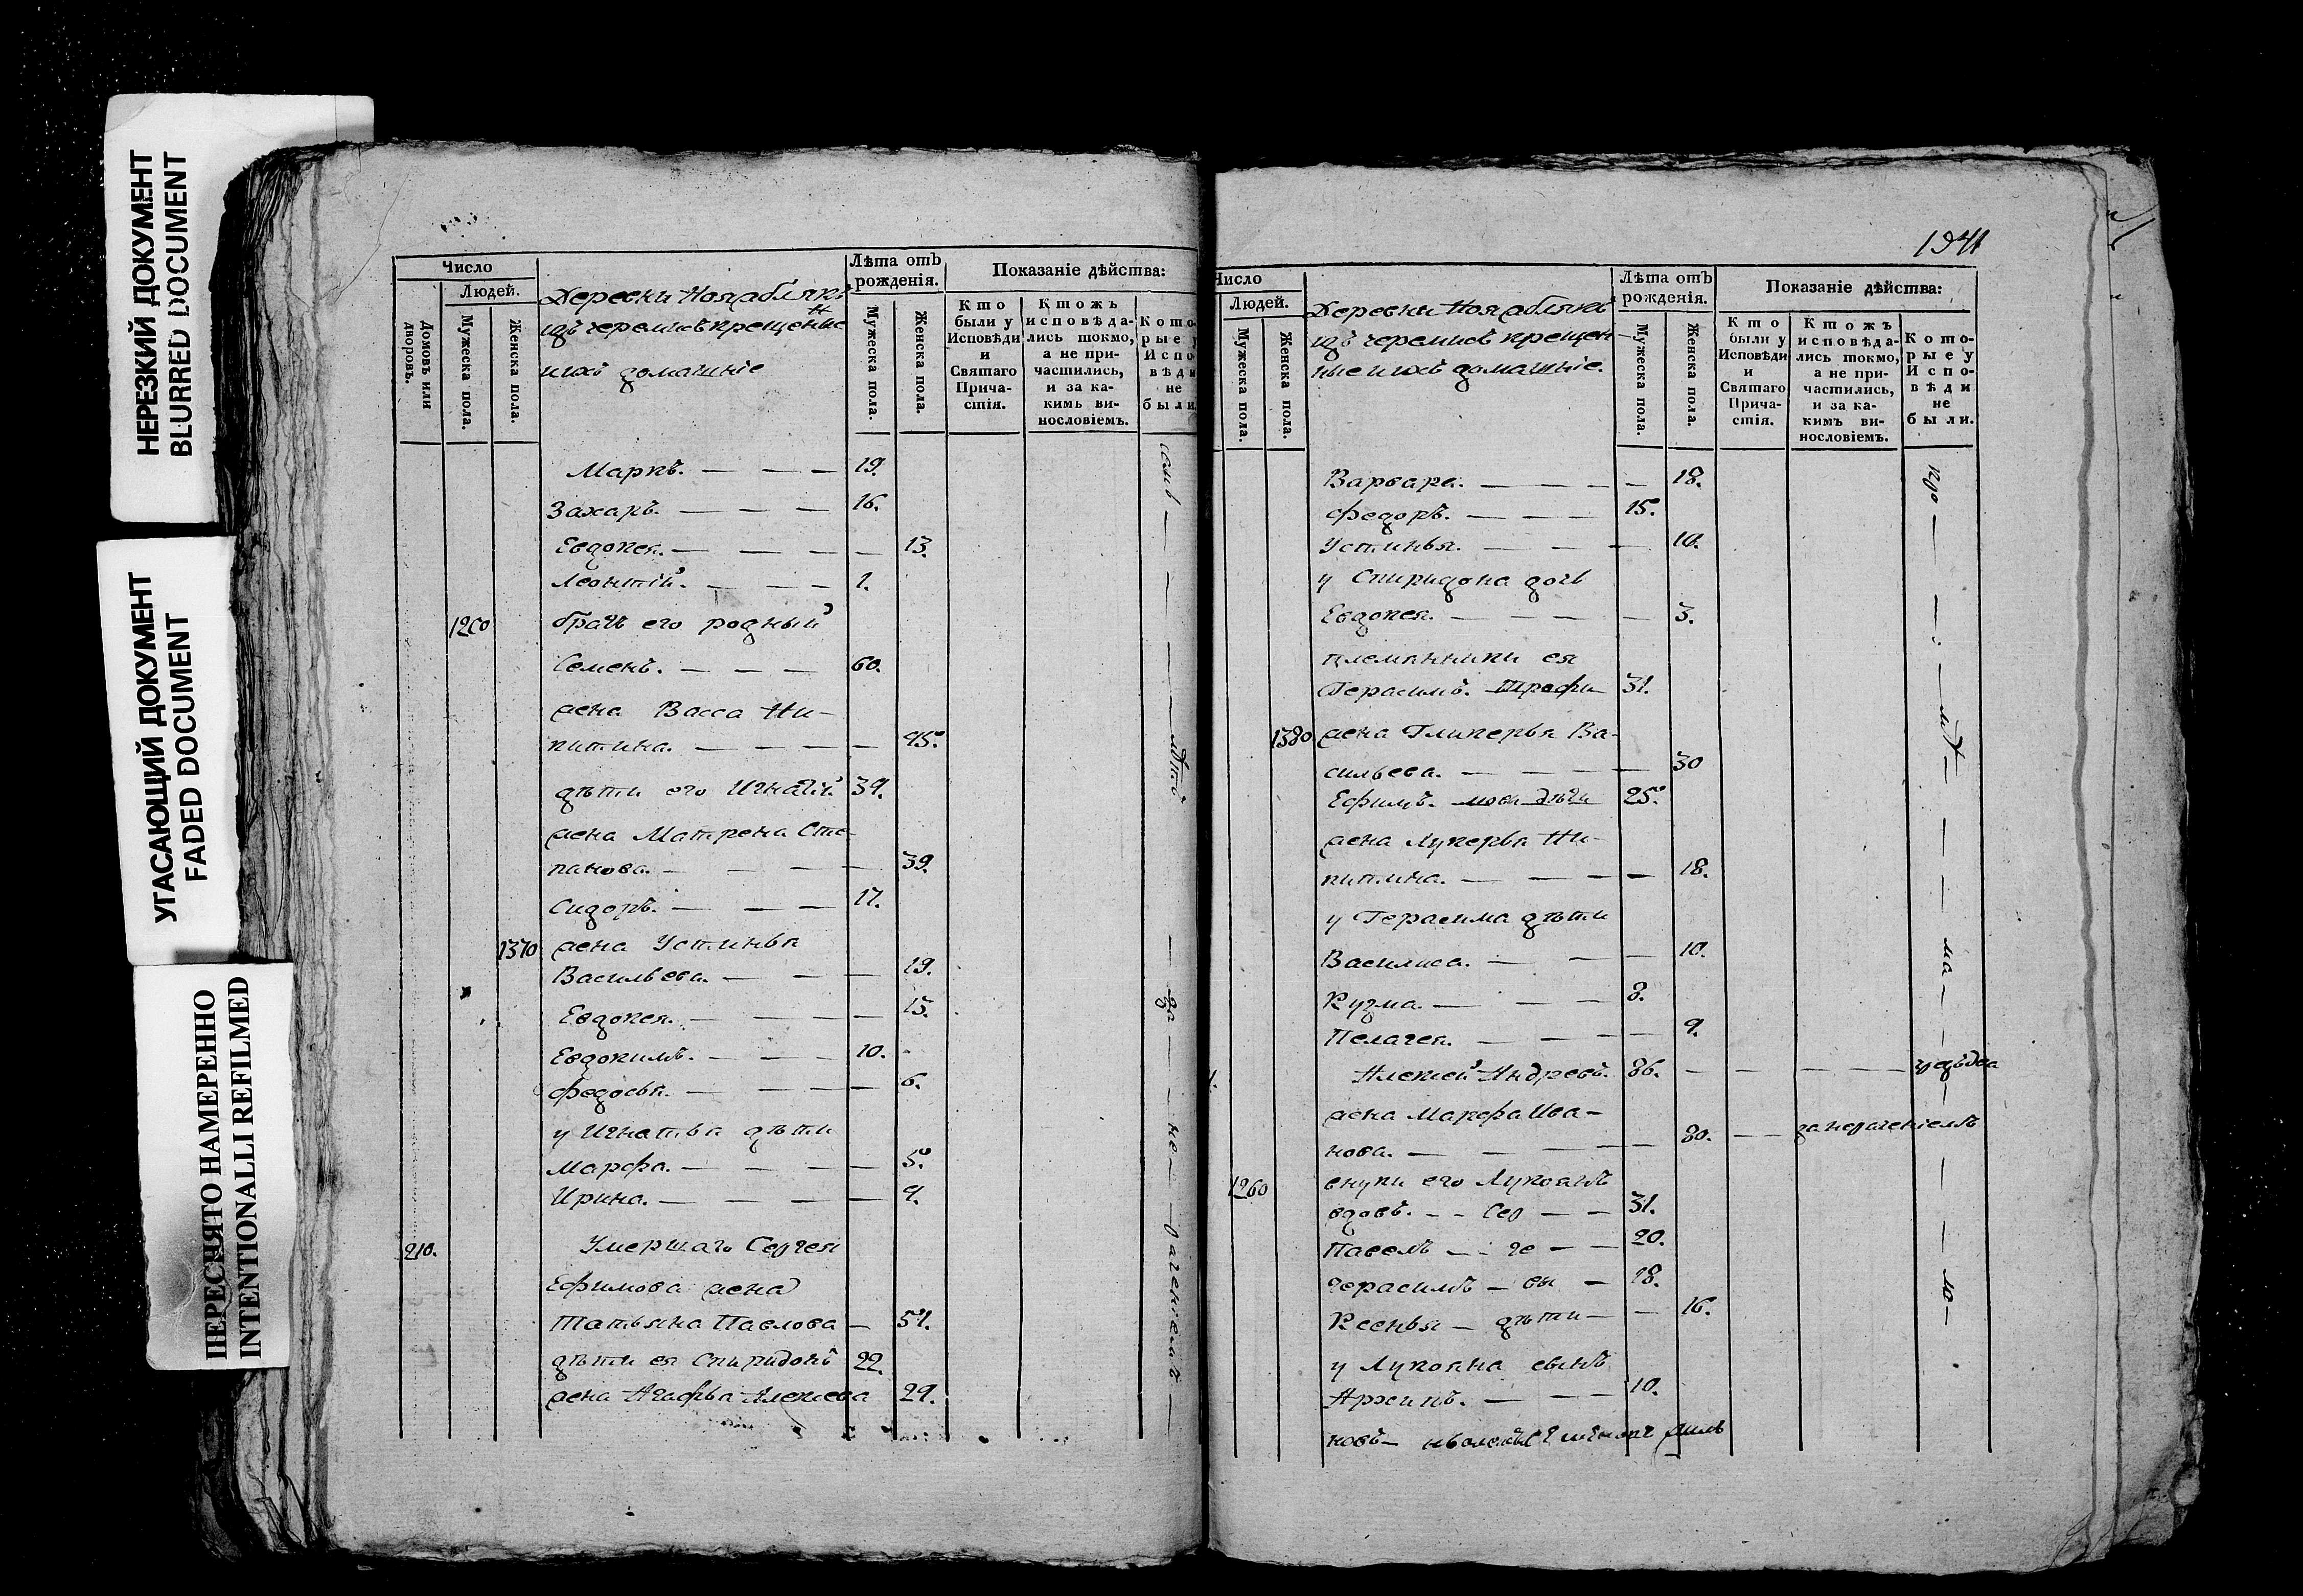 НЕРЕЗКИЙ ДОКУМЕНТ
BLURRED DOCUMENT
УГАСАЮЩИЙ ДОКУМЕНТ
FADED DOCUMENT
ПЕРЕСНЯТО НАМЕРЕННО
INTENTIONALLI REFILMED
Число
Людей.
Домовъ или дворовъ.
Мужеска пола.
Женска пола.
Деревни
изъ черемисъ крещеные
и ихъ домашніе
Лѣта отъ
рожденія.
Мужеска пола.
Женска пола.
Показаніе дѣйства:
Кто
были у
Исповѣди
и
Святаго
Прича-
стія.
Ктожъ
исповѣда-
лись токмо,
а не при-
частились,
и за ка-
кимъ ви-
нословіемъ.
Кото-
рые у
Испо-
вѣди
не
были
Маркъ. — — — 19.
Захаръ. — — — 16.
Евдокея. — — — — 13.
Леонтій. — — — 1.
1200 братъ его родный
Семенъ. — — — 60.
жена Васса Ни-
китина. — — — — 45.
дѣти его Игнатій 39.
жена Матрена Сте-
панова. — — — 39.
Сидоръ. — — — 17.
1370 жена Устинья
Васильева. — — — 19.
Евдокея. — — — — 15.
Евдокимъ. — — — 10.
Федосья. — — — — 6.
у Игнатья дѣти
Марфа. — — — — 5.
Ирина. — — — — 4.
210. Умершаго Сергея
Ефимова жена
Татьяна Павлова — 54.
дѣти ея Спиридонъ 22
жена Агафья Алексеева 24.
за — не — раченіемъ —
1941
Число
Людей.
Мужеска пола.
Женска пола.
Деревни
изъ черемисъ крещен-
ные и ихъ домашніе.
Лѣта отъ
рожденія.
Мужеска пола.
Женска пола.
Показаніе дѣйства:
Кто
были у
Исповѣди
и
Святаго
Прича-
стія.
Ктожъ
исповѣда-
лись токмо,
а не при-
частились,
и за ка-
кимъ ви-
нословіемъ.
Кото-
рые у
Испо-
вѣди
не
были.
Варвара. — — — — 18.
Федоръ. — — — 15.
Устинья. — — — 10.
у Спиридона дочь
Евдокея. — — — — 3.
племянники ея
Герасимъ. 31.
1380 жена Гликерья Ва-
сильева. — — — — 30
Ефимъ. 25.
жена Лукерья Ни-
китина. — — — — 18.
у Герасима дѣти
Василиса. — — — 10.
Кузма. — — — 8.
Пелагея. — — — — 4.
Алексей Андреевъ. 86. — — — —
жена Марфа Ива-
нова. — — — — 80. — — за нераченіемъ
1260 внуки его Лукоянъ
вдовъ. — — Сер — — 31.
Павелъ — — ге — — 20.
Герасимъ — вы — 18.
Ксенья — дѣти — — 16.
у Лукояна сынъ
Архипъ. — — — 10.